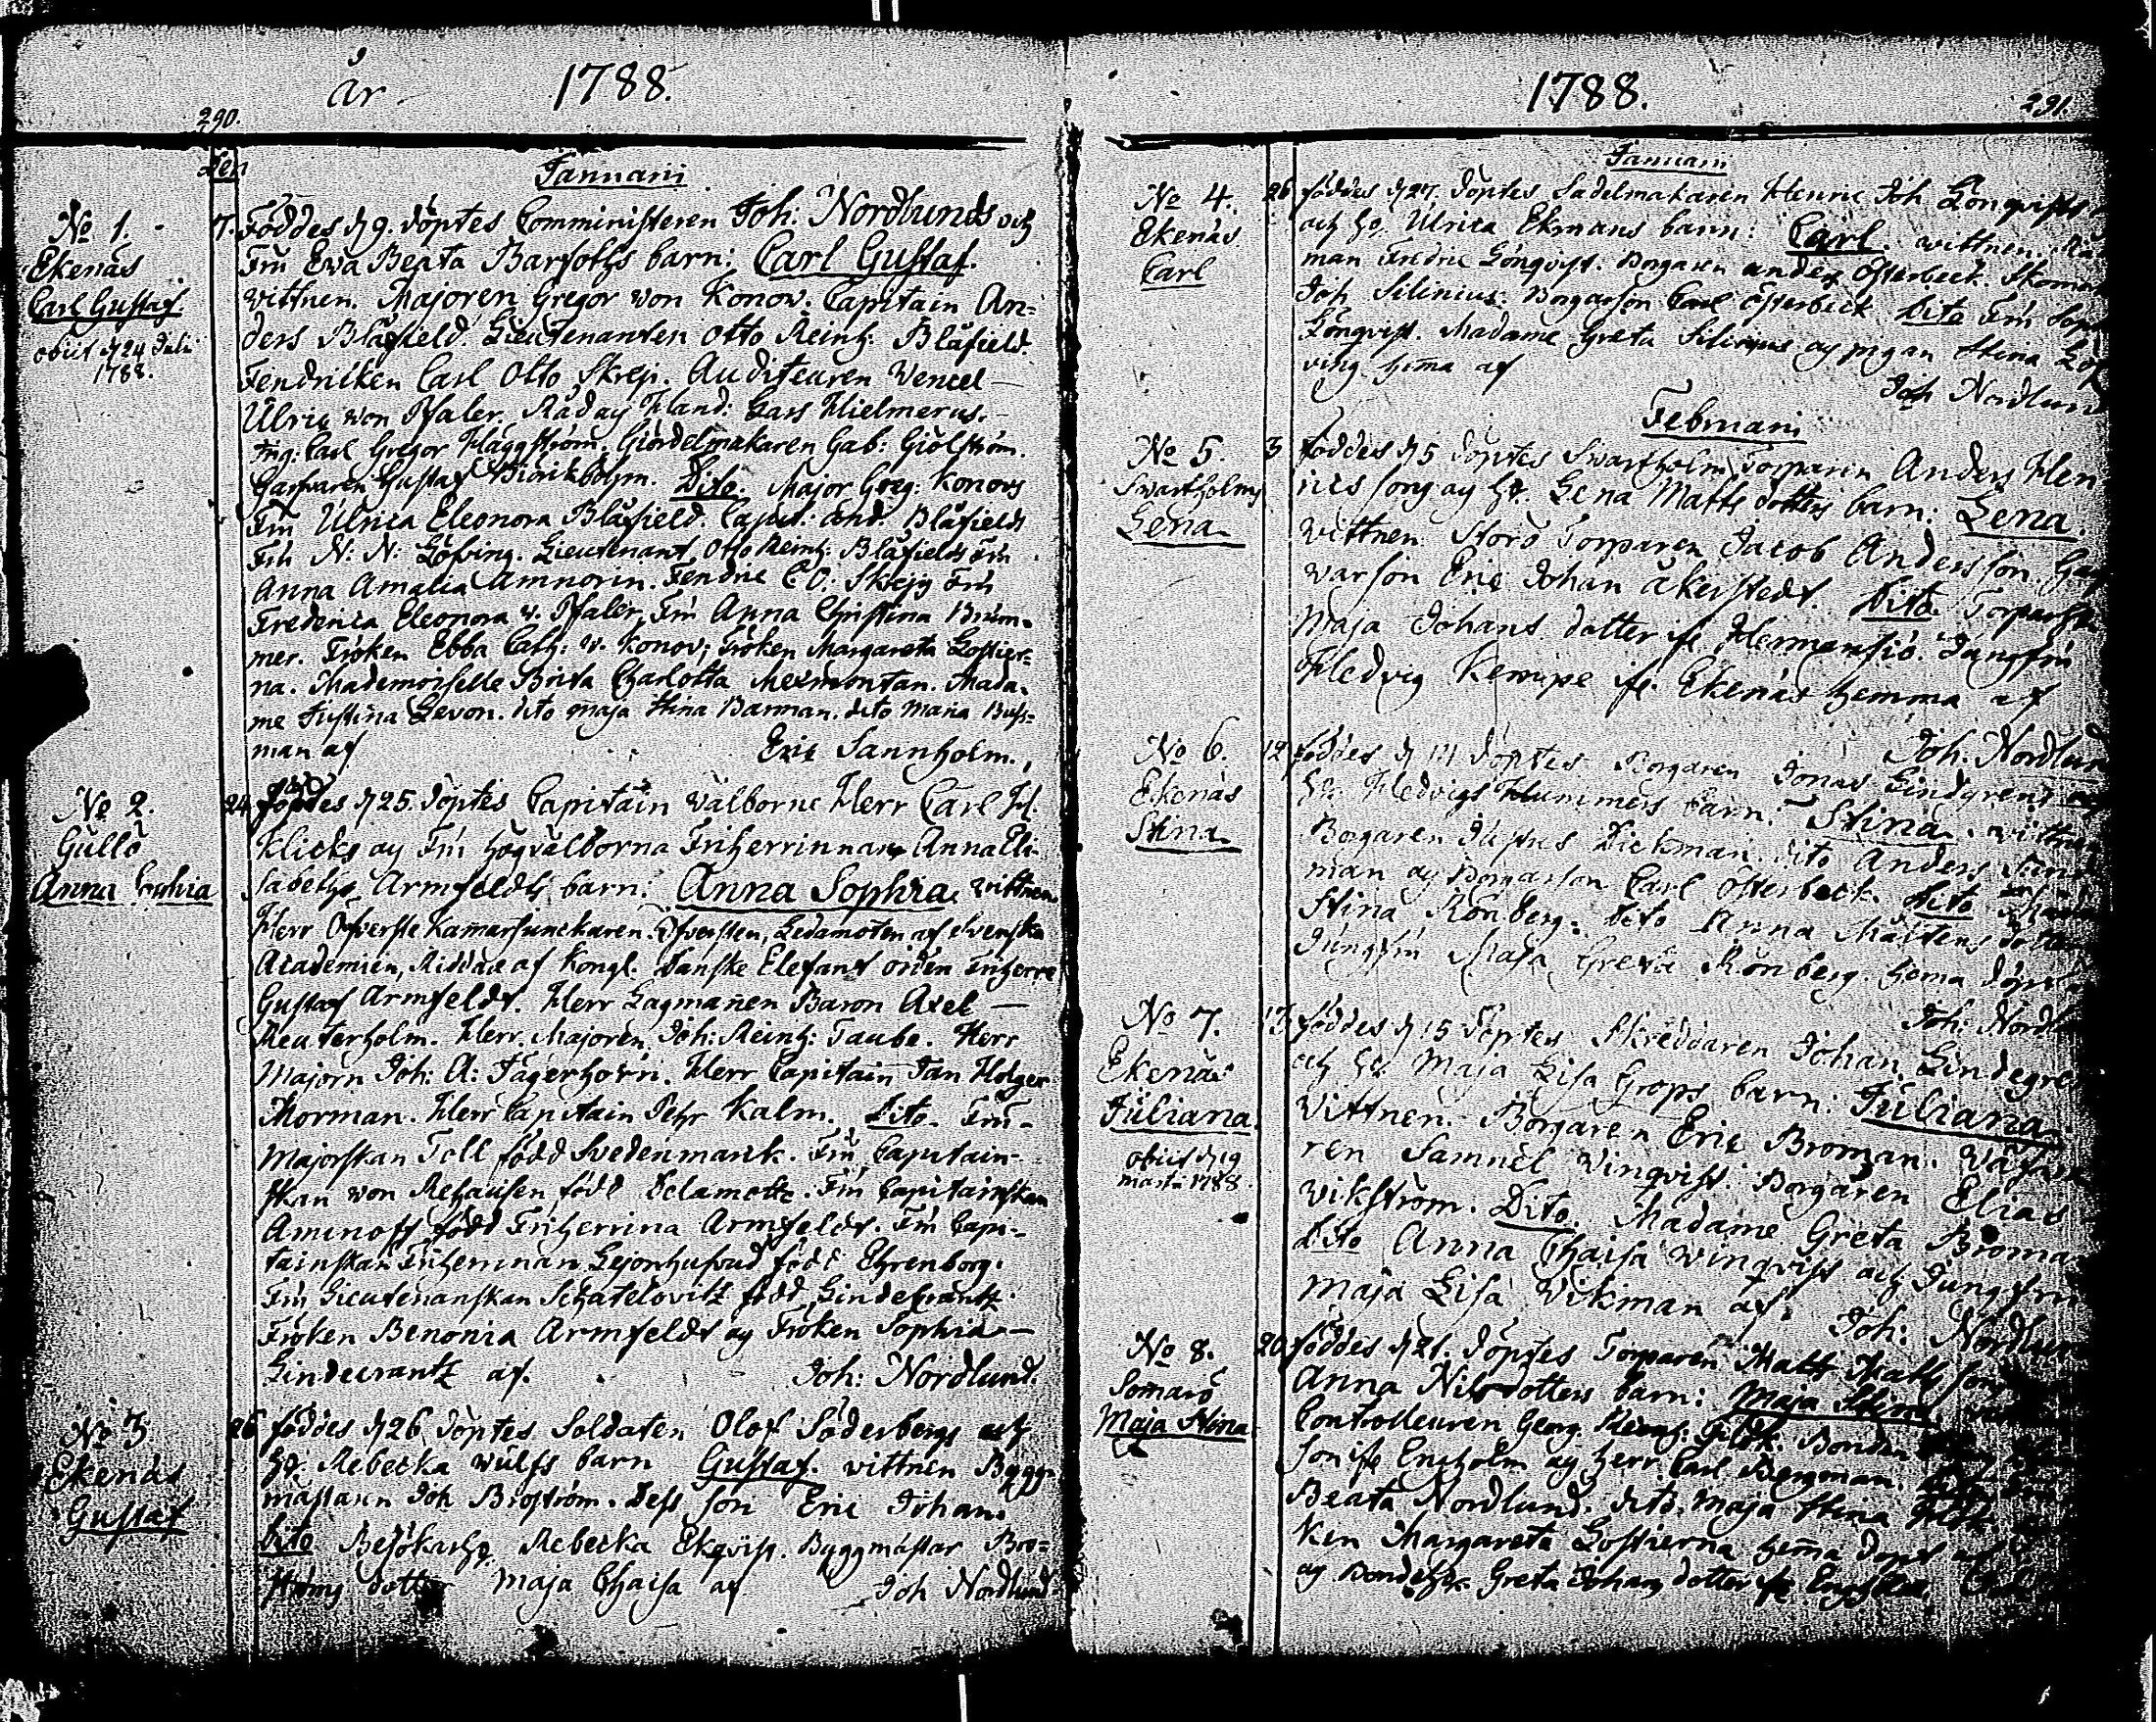 år 1788.
290.
den
Januarii
No 1.
Ekenäs
Carl Gustaf
obiit d 24 Julii
1788.
7. Föddes d 9. döptes Comministeren Joh: Nordlunds och
Fru Eva Beata Barfoths barn: Carl Gustaf.
vittnen. Majoren Gregor von Konow. Capitain An-
ders Blåfield. Lieutenanten Otto Reinh: Blåfield.
Fendricken Carl Otto Skrej. Auditeuren Wencel
Ulric von Pfaler. Råd och Hand: Lars Hielmerus.
Carl Gregor Häggström. Giördelmakaren Gab: Giölström.
Garfvaren Gustaf Biörkbohm. Dito. Major Greg: Konows
Fru Ulrica Eleonora Blåfield. Capit: And: Blåfields
Fru N: N: Löfving. Lieutenant Otto Reinh: Blåfields Fru
Anna Amalia Amnorin. Fendric C: O: Skrejs Fru
Frederica Eleonora v. Pfaler, Fru Anna Christina Brum-
mer. Fröken Ebba Cath: v. Konow, Fröken Margareta Lostier-
na. Mademoiselle Brita Charlotta Mexmontan. Mada-
me Justina Levon. dito Maja Stina Barman. dito Maria Buss-
man af Eric Sannholm.
No 2.
Gullö
Anna Sophia
24. föddes d 25. döptes Capitain välborne Herr Carl H.
Klicks och Fru högvälborna Friherrinnan Anna Eli-
sabeths Armfeldts barn: Anna Sophia. vittnen.
Herr Öfverste Kamarjunckaren. Öfversten, Ledamoten af Svenska
Academien, Riddare af Kongl. Danske Elefant orden Friherre
Gustaf Armfeldt. Herr Lagmannen Baron Axel
Reuterholm. Herr Majoren Joh: Reinh: Taube. Herr
Majorn Joh: A: Jägerhorn. Herr Capitain Jan Holger
Thorman. Herr Capitain Pehr Kalm. Dito. Fru
Majorskan Toll född Svedenmarck. Fru Capitain-
skan von Rehausen född Delamotte. Fru Capitainskan
Aminoff född Friherrina Armfeldt. Fru Capi-
tainskan Friherrinan Lejonhufvud född Ehrenborg.
Fru Lieutenanskan Schatelovitz född Lindecrantz.
Fröken Benonia Armfeldt och Fröken Sophia
Lindecrantz af. Joh: Nordlund.
No 3.
Ekenäs
Gustaf
26 föddes d 26 döptes Soldaten Olof Söderbergs och
Hu. Rebecka Wulfs barn Gustaf. vittnen Bygg-
mästaren Joh Broström. Dess son Eric Johan.
Dito Besökarhu. Rebecka Ekqvist. Byggmästar Bro-
ströms dotter Maja Chaisa af Joh Nordlund
1788.
291.
Januarii
No 4.
Ekenäs
Carl
26 föddes d 27. döptes Sadelmakaren Henric Joh Lönqvists
och Hu. Ulrica Ekmans barn: Carl. vittnen.
man Fredric Lönqvist. Borgaren Anders Österbeck.
Joh Silinius. Borgarson Carl Österbeck. Dito Fru
Lönqvist. Madame Greta Silinius och pigan Stina
ving hema af Joh Nordlun
Februarii
No 5.
Svartholm
Lena
3 föddes d 5 döptes Svartholm Torparen Anders Hen
rics sons och Hu. Lena Matts dotters barn: Lena.
vittnen. Storö Torparen Jacob Andersson.
varson Eric Johan Åkerstedt. Dito.
Maja Johans dotter fr. Hermansiö. Jungfru
Hedvig Kempe fr. Ekenäs hemma af
Joh: Nordlun
No 6.
Ekenäs
Stina
12 föddes d 14 döptes Borgaren Jonas Lindgrens
Hu. Hedvigs Hummers barn: Stina. vittnen
Borgaren Dickman. dito Anders
man och Borgarson Carl Österbeck. Dito
Stina Rönberg. dito Anna Mårtens dotter
Jungfru Maja Greta Rönberg. hema döpt
Joh: Nordl
No 7.
Ekenäs
Juliana
obiit d 19
martii 1788.
13 föddes d 15 döptes Skreddaren Johan Lindegre
och Hu Maja Lisa Grops barn: Juliana.
Vittnen. Borgaren Eric Broman.
ren Samuel Vinqvist. Borgaren Elias
Vikström. Dito. Madame Greta Broman
dito Anna Chaisa Winqvist och Jungfru
Maja Lisa Vikman af.
Joh: Nordlun
No 8.
Somarö
Maja Stina
20 föddes d 21. döptes Torparen Matts Matts sons
Anna Nilsdotters barn: Maja Stina
Controlleuren Georg Reinh: Bonden
son fr Engholm och Herr Carl Bergman.
Beata Nordlund. dito. Maja Stina
ken Margareta Lostierna hema döpt
och Bondehu. Greta Johans dotter fr.